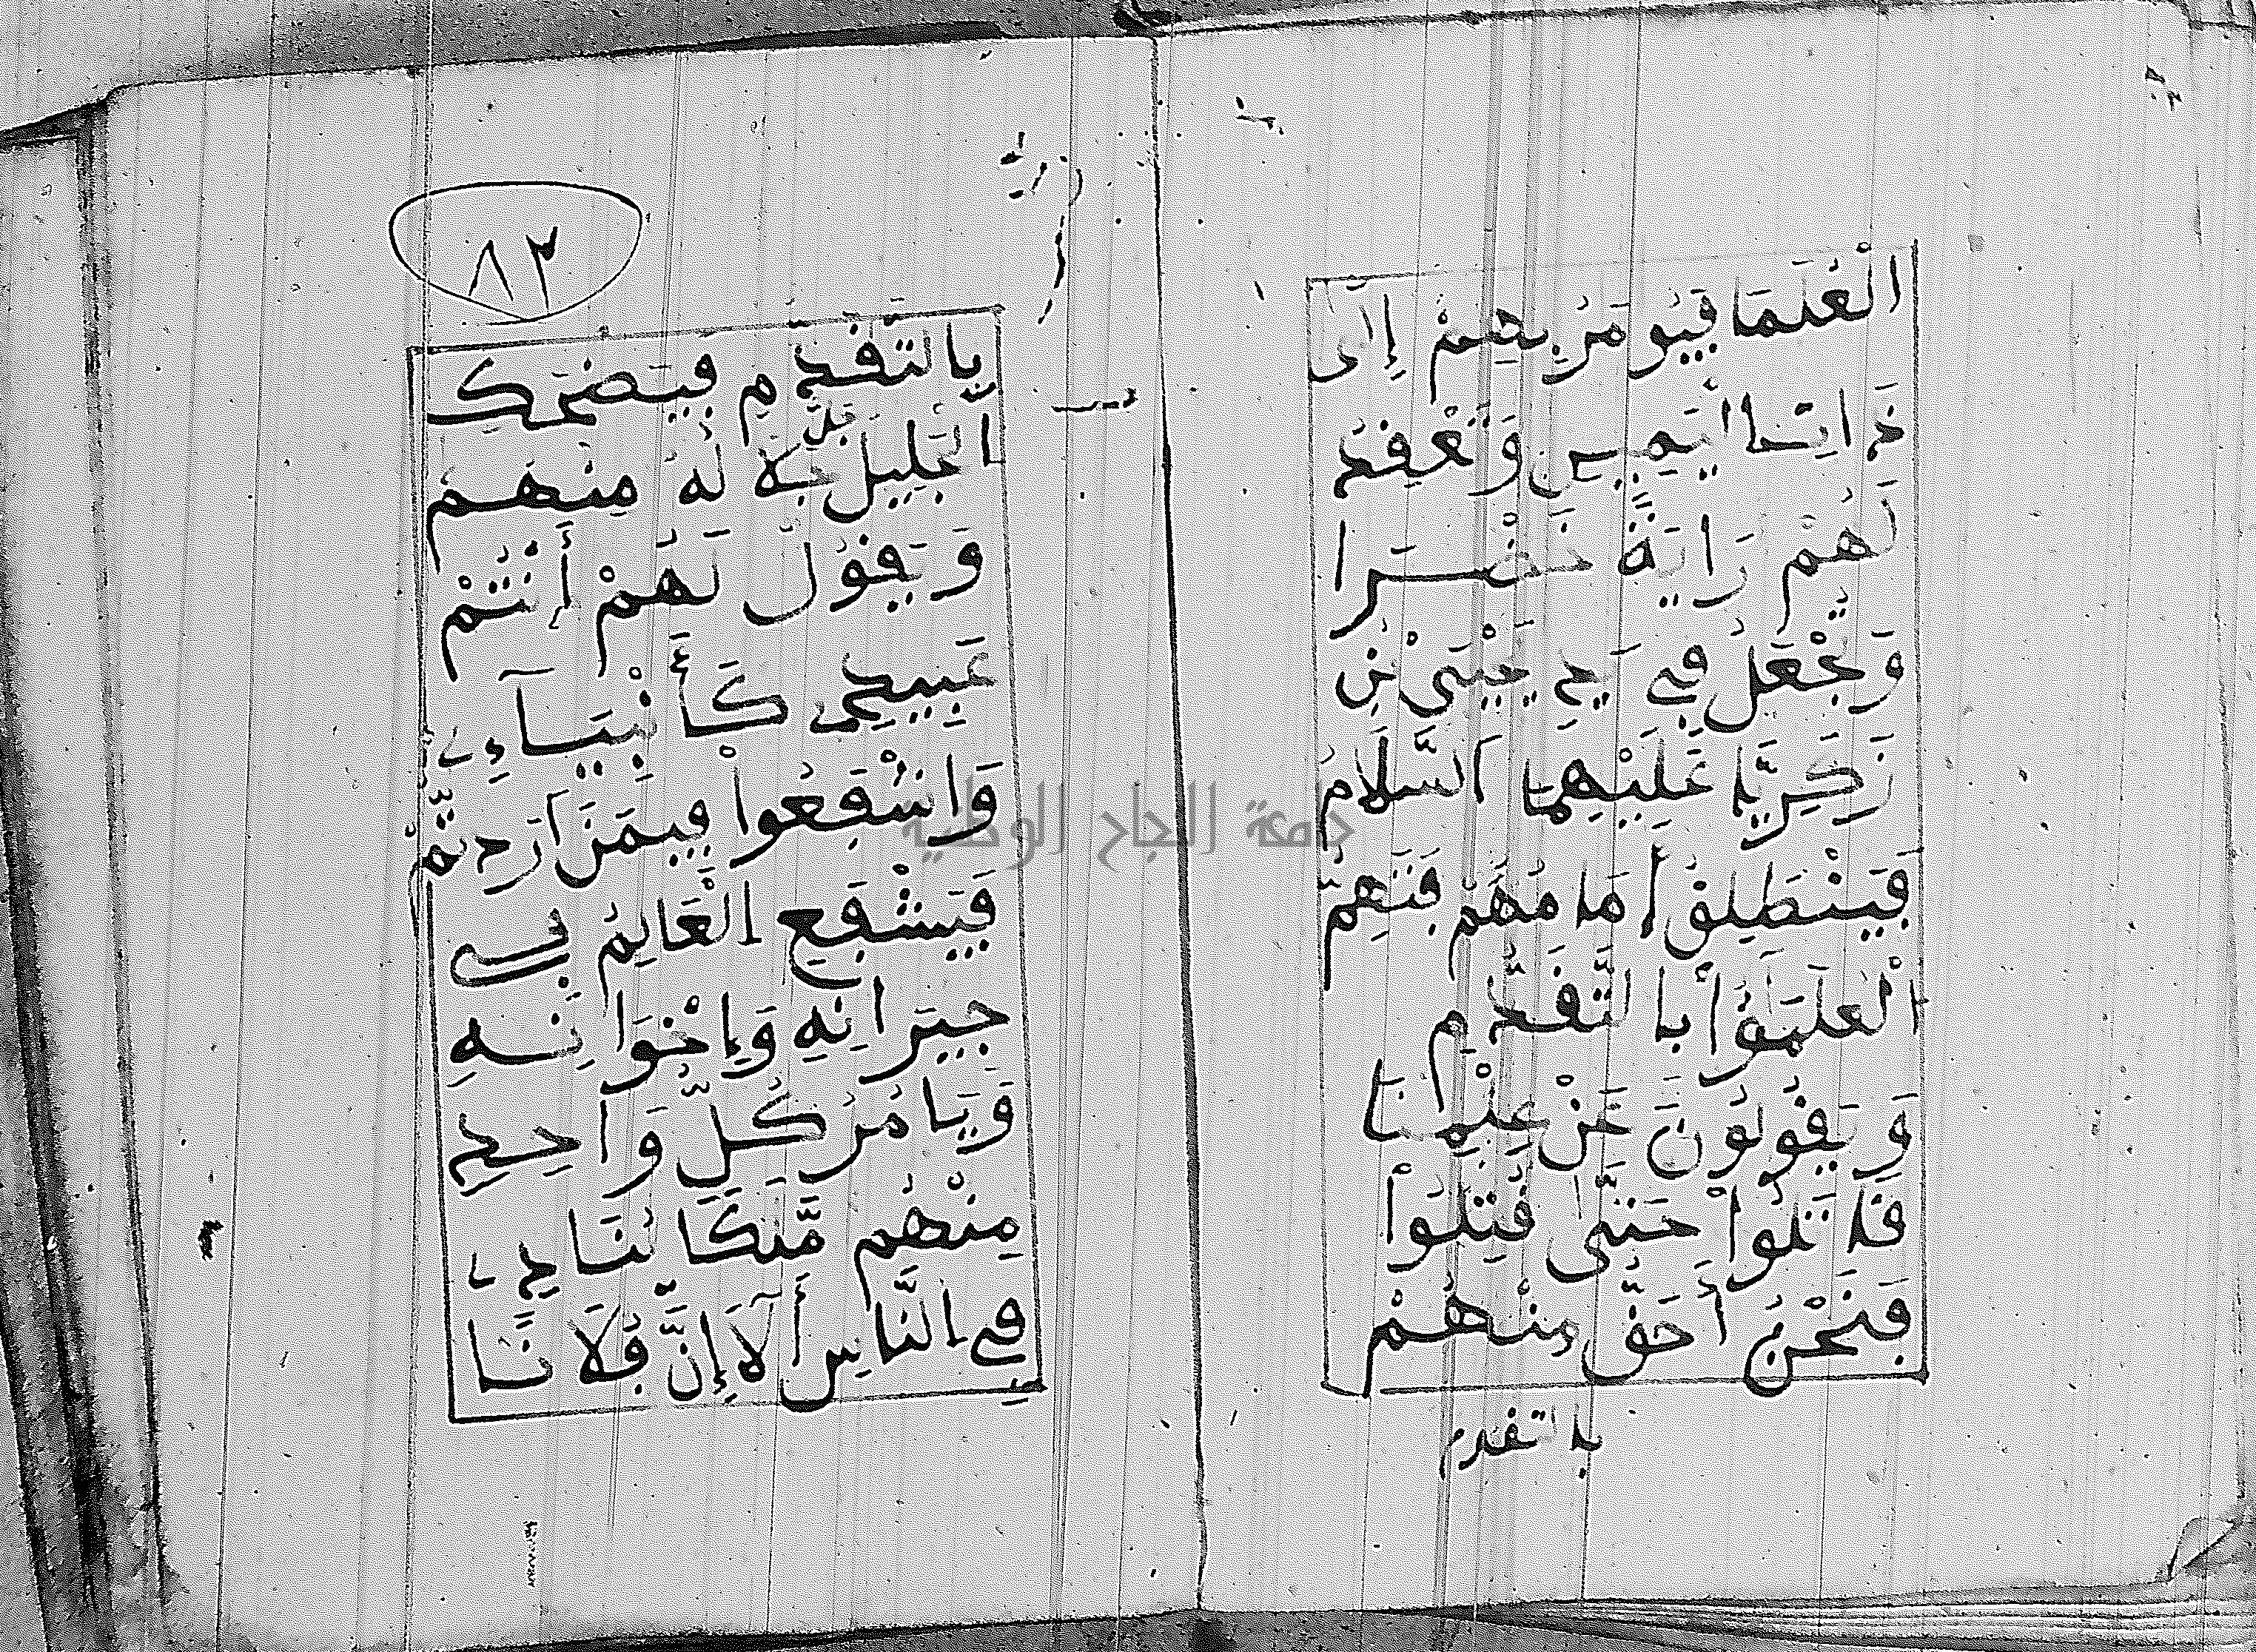 الْعُلَمَا فَيُومَرُ بِهِمْ إِلَى
ذَاتِ الْيَمِينِ وَتُعْقَدُ
لَهُمْ رَايَةٌ خَضْرَا
وَتُجْعَلُ فِي يَدِ يَحْيَى بْنِ
زَكَرِيَّا عَلَيْهِمَا السَّلَامُ
فَيَنْطَلِقُ أَمَامَهُمْ فَتَهِمّ
الْعُلَمَؤُاْ بِالتَّقَدُّمِ
وَيَقُولُونَ عَنْ عِلْمِنَا
قَاتَلُواْ حَتَّى قُتِلُواْ
فَنَحْنُ أَحَقُّ مِنْهُمْ
بالتقدم
٨٢
بِالتَّقَدُّمِ فَيَضْحَكُ
الْجَلِيلُ جَلَّ جَلَالُهُ مِنْهُمْ
وَيَقُولُ لَهُمْ أَنْتُمْ
عَبِيدِي كَأَنْبِيَآءِي
وَاشْفَعُواْ فِيمَنَ اَرَدتُّمْ
فَيَشْفَعُ الْعَالِمُ فِي
جِيرَانِهِ وَإِخْوَانِهِ
وَيَامُرُ كُلَّ وَاحِدٍ
مِنْهُم مَّلَكًا يُنَادِي
فِي النَّاسِ أَلَآ إِنَّ فُلَانًا
جامعة النجاح الوطنية